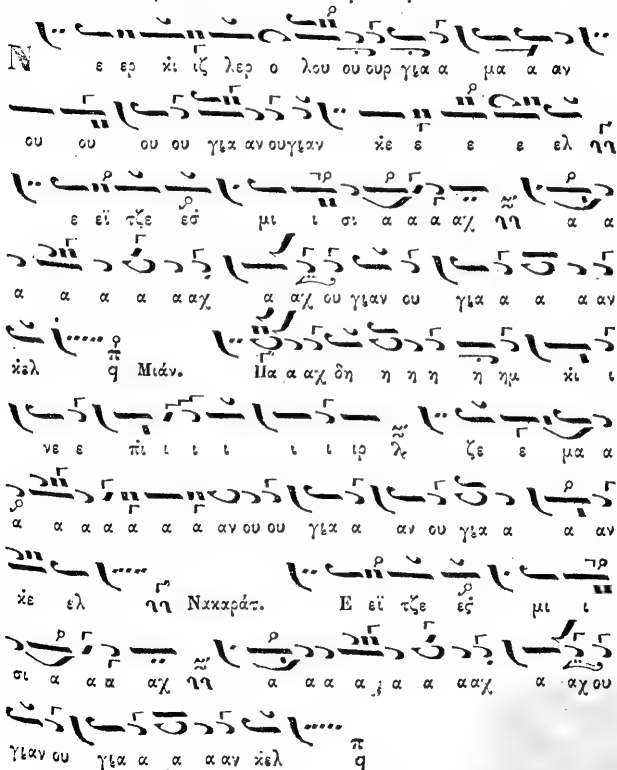 Ν ε ερ κ̇ι ιζ λερ ο λου ου ουρ για α μα α αν
ου ου ου ου για αν ουγιαν κ̇ε ε ε ε ελ
ε εϊ τζε εσ̇ μι ι σι α α α αχ α α
α α α α α αχ α αχ ου γιαν ου για α α α αν
κ̇ελ π̇ q Μιάν. Πα α αχ δη η η η η ημ κ̇ι ι
νε ε π̇ι ι ι ι ι ι ιρ ζε ε μα α
α α α α α α α αν ου ου για α αν ου για α α αν
κ̇ε ελ Νακαράτ. Ε εϊ τζε εσ̇ μι ι
σι α α α αχ α α α α α α α αχ α αχ ου
γιαν ου για α α α αν κ̇ελ π̇ q